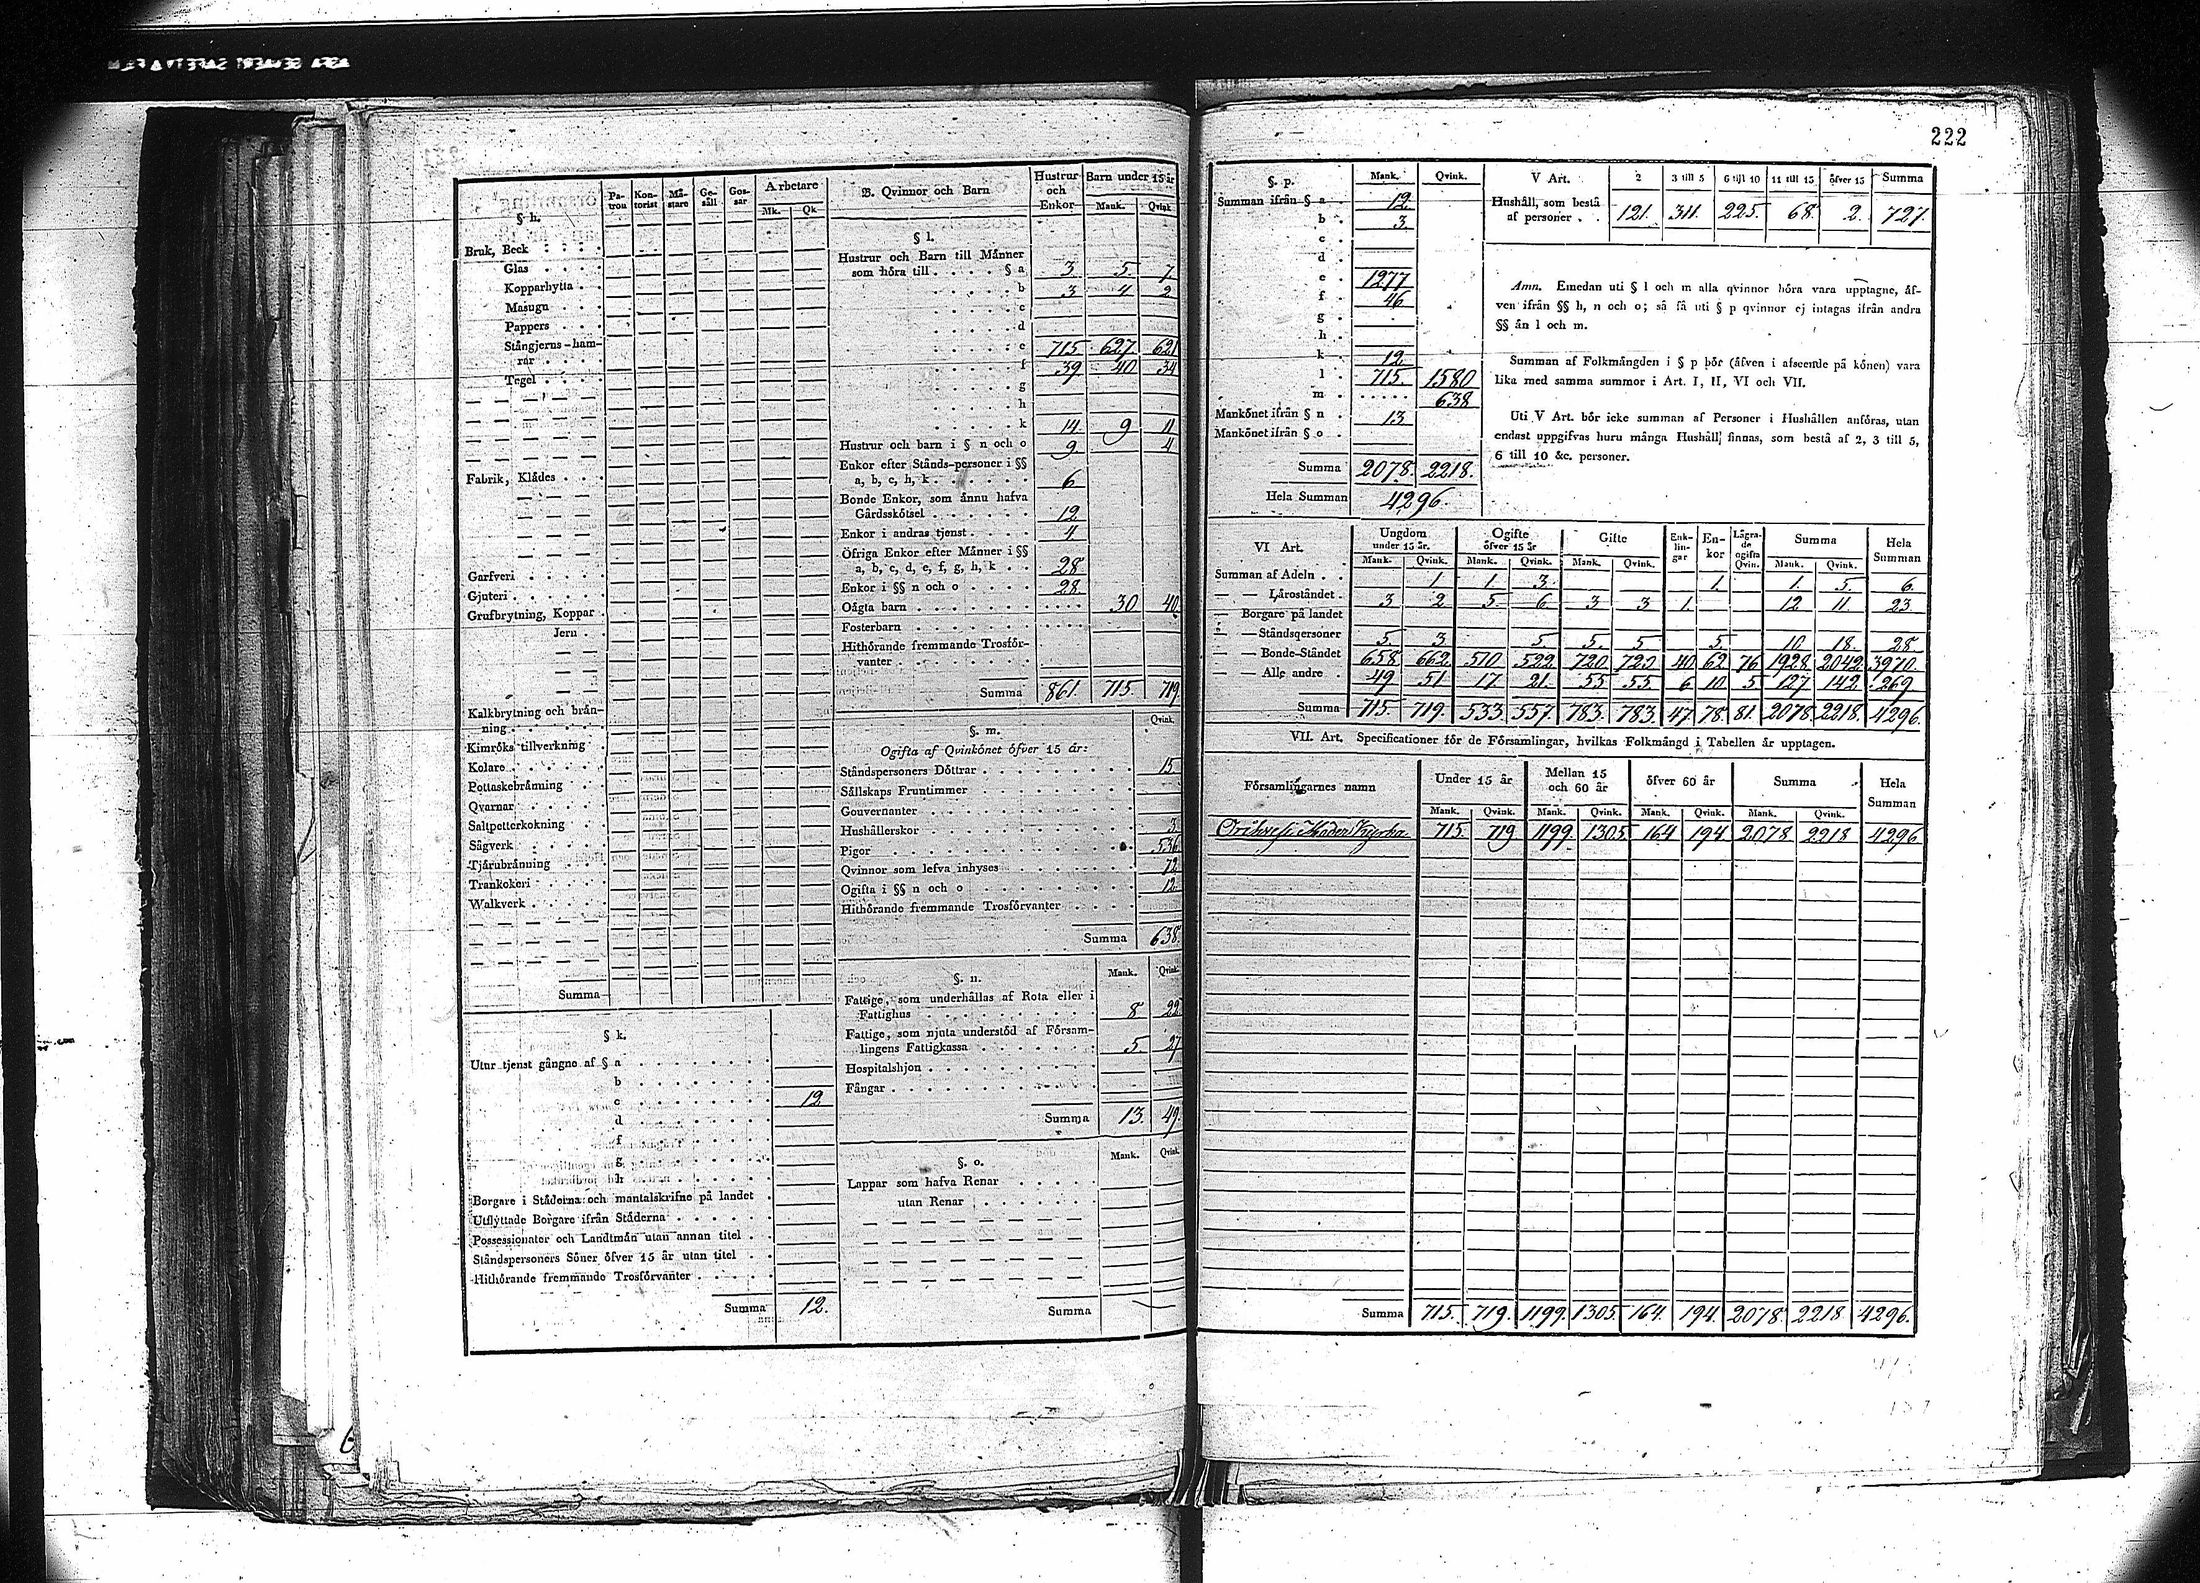 222
§ h.
Pa-
tron
Kon-
torist
Mä-
stare
Ge-
säll
Gos-
sar
Arbetare
Mk. Qk
Bruk, Beck . . . .
Glas . . . .
Kopparhytta . .
Masugn . . .
Pappers . . .
Stångjerns-ham-
rar . . . .
Tegel . . . .
Fabrik, Klädes . . .
Garfveri . . . . .
Gjuteri . . . . . .
Grufbrytning, Koppar .
Jern . .
Kalkbrytning och brän-
ning . . . . . .
Kimröks tillverkning .
Kolare . . . . . .
Pottaskebränning . .
Qvarnar . . . . .
Saltpetterkokning . .
Sågverk . . . . .
Tjärubränning . . .
Trankokeri . . . .
Walkverk . . . . .
Summa
§ k.
Utur tjenst gångne af § a . . . . . . .
b . . . . . . .
c . . . . . . . 12
d . . . . . . .
f . . . . . . .
g . . . . . . .
h . . . . . . .
Borgare i Städerna och mantalskrifne på landet .
Utflyttade Borgare ifrån Städerna . . . . . .
Possessionater och Landtmän utan annan titel . .
Ståndspersoners Söner öfver 15 år utan titel . .
Hithörande fremmande Trosförvanter . . . . .
Summa 12.
B. Qvinnor och Barn
Hustrur
och
Enkor
Barn under 15 år
Mank. Qvink
§ l.
Hustrur och Barn till Männer
som höra till . . . . § a 3 5 7
b 3 4 2
c
d
e 715 627 621
f 39 40 34
g
h
k 14 9 11
Hustrur och barn i § n och o 9 4
Enkor efter Stånds-personer i §§
a, b, c, h, k . . . . . . 6
Bonde Enkor, som ännu hafva
Gårdsskötsel . . . . . . 12
Enkor i andras tjenst . . . . 4
Öfriga Enkor efter Männer i §§
a, b, c, d, e, f, g, h, k . . 28
Enkor i §§ n och o . . . . 28
Oägta barn . . . . . . . . 30 40
Fosterbarn . . . . . . . .
Hithörande fremmande Trosför-
vanter . . . . . . . .
Summa 861. 715 719.
§. m. Qvink.
Ogifta af Qvinkönet öfver 15 år:
Ståndspersoners Döttrar . . . . . . . . 15
Sällskaps Fruntimmer . . . . . . . .
Gouvernanter . . . . . . . . . . .
Hushållerskor . . . . . . . . . . . 3
Pigor . . . . . . . . . . . . . 536
Qvinnor som lefva inhyses . . . . . . . 72
Ogifta i §§ n och o . . . . . . . . . 12
Hithörande fremmande Trosförvanter . . . .
Summa 638.
§. n. Mank. Qvink
Fattige, som underhållas af Rota eller i
Fattighus . . . . . . . . . 8 22
Fattige, som njuta understöd af Försam-
lingens Fattigkassa . . . . . . . 5. 27
Hospitalshjon . . . . . . . . . .
Fångar . . . . . . . . . . . .
Summa 13. 49.
§. o. Mank. Qvink
Lappar som hafva Renar . . . . .
utan Renar . . . . . .
Summa
§. p. Mank. Qvink.
Summan ifrån § a . 12
b . 3.
c .
d .
e . 1277
f . 46
g .
h .
k . 12
l . 715. 1580
m . . . . . . 638
Mankönet ifrån § n . 13
Mankönet ifrån § o .
Summa 2078. 2218.
Hela Summan 4296.
V Art. 2 3 till 5 6 till 10 11 till 15 öfver 15 Summa
Hushåll, som bestå
af personer . . 121. 311. 225. 68. 2. 727.
Amn. Emedan uti § l och m alla qvinnor böra vara upptagne, äf-
ven ifrån §§ h, n och o; så få uti § p qvinnor ej intagas ifrån andra
§§ än l och m.
Summan af Folkmängden i § p bör (äfven i afseende på könen) vara
lika med samma summor i Art. I, II, VI och VII.
Uti V Art. bör icke summan af Personer i Hushållen anföras, utan
endast uppgifvas huru många Hushåll finnas, som bestå af 2, 3 till 5,
6 till 10 &c. personer.
VI Art.
Ungdom
under 15 år.
Ogifte
öfver 15 år
Gifte
Enk-
lin-
gar
En-
kor
Lägra-
de
ogifta
Qvin.
Summa
Hela
Summan
Mank. Qvink. Mank. Qvink. Mank. Qvink. Mank. Qvink.
Summan af Adeln . . 1 1. 3. 1. 1. 5. 6.
— — Läroståndet . 3 2 5. 6 3 3 1. 12 11. 23.
— — Borgare på landet
— — Ståndspersoner 5. 3 5 5. 5 5. 10 18. 28
— — Bonde-Ståndet 658 662 510 522 720 720 40 62 76 1928 2042 3970.
— — Alle andre . 49 51 17 21. 55 55. 6 10. 5 127. 142 269
Summa 715. 719. 533. 557. 783. 783. 47. 78. 81. 2078. 2218. 4296.
VII. Art. Specificationer för de Församlingar, hvilkas Folkmängd i Tabellen är upptagen.
Församlingarnes namn
Under 15 år
Mellan 15
och 60 år
öfver 60 år
Summa
Hela
Summan
Mank. Qvink. Mank. Qvink. Mank. Qvink. Mank. Qvink.
Orihvesi Moder Kyrka 715. 719 1199. 1305. 164 194 2078 2218 4296
Summa 715. 719. 1199. 1305. 164. 194. 2078. 2218 4296.